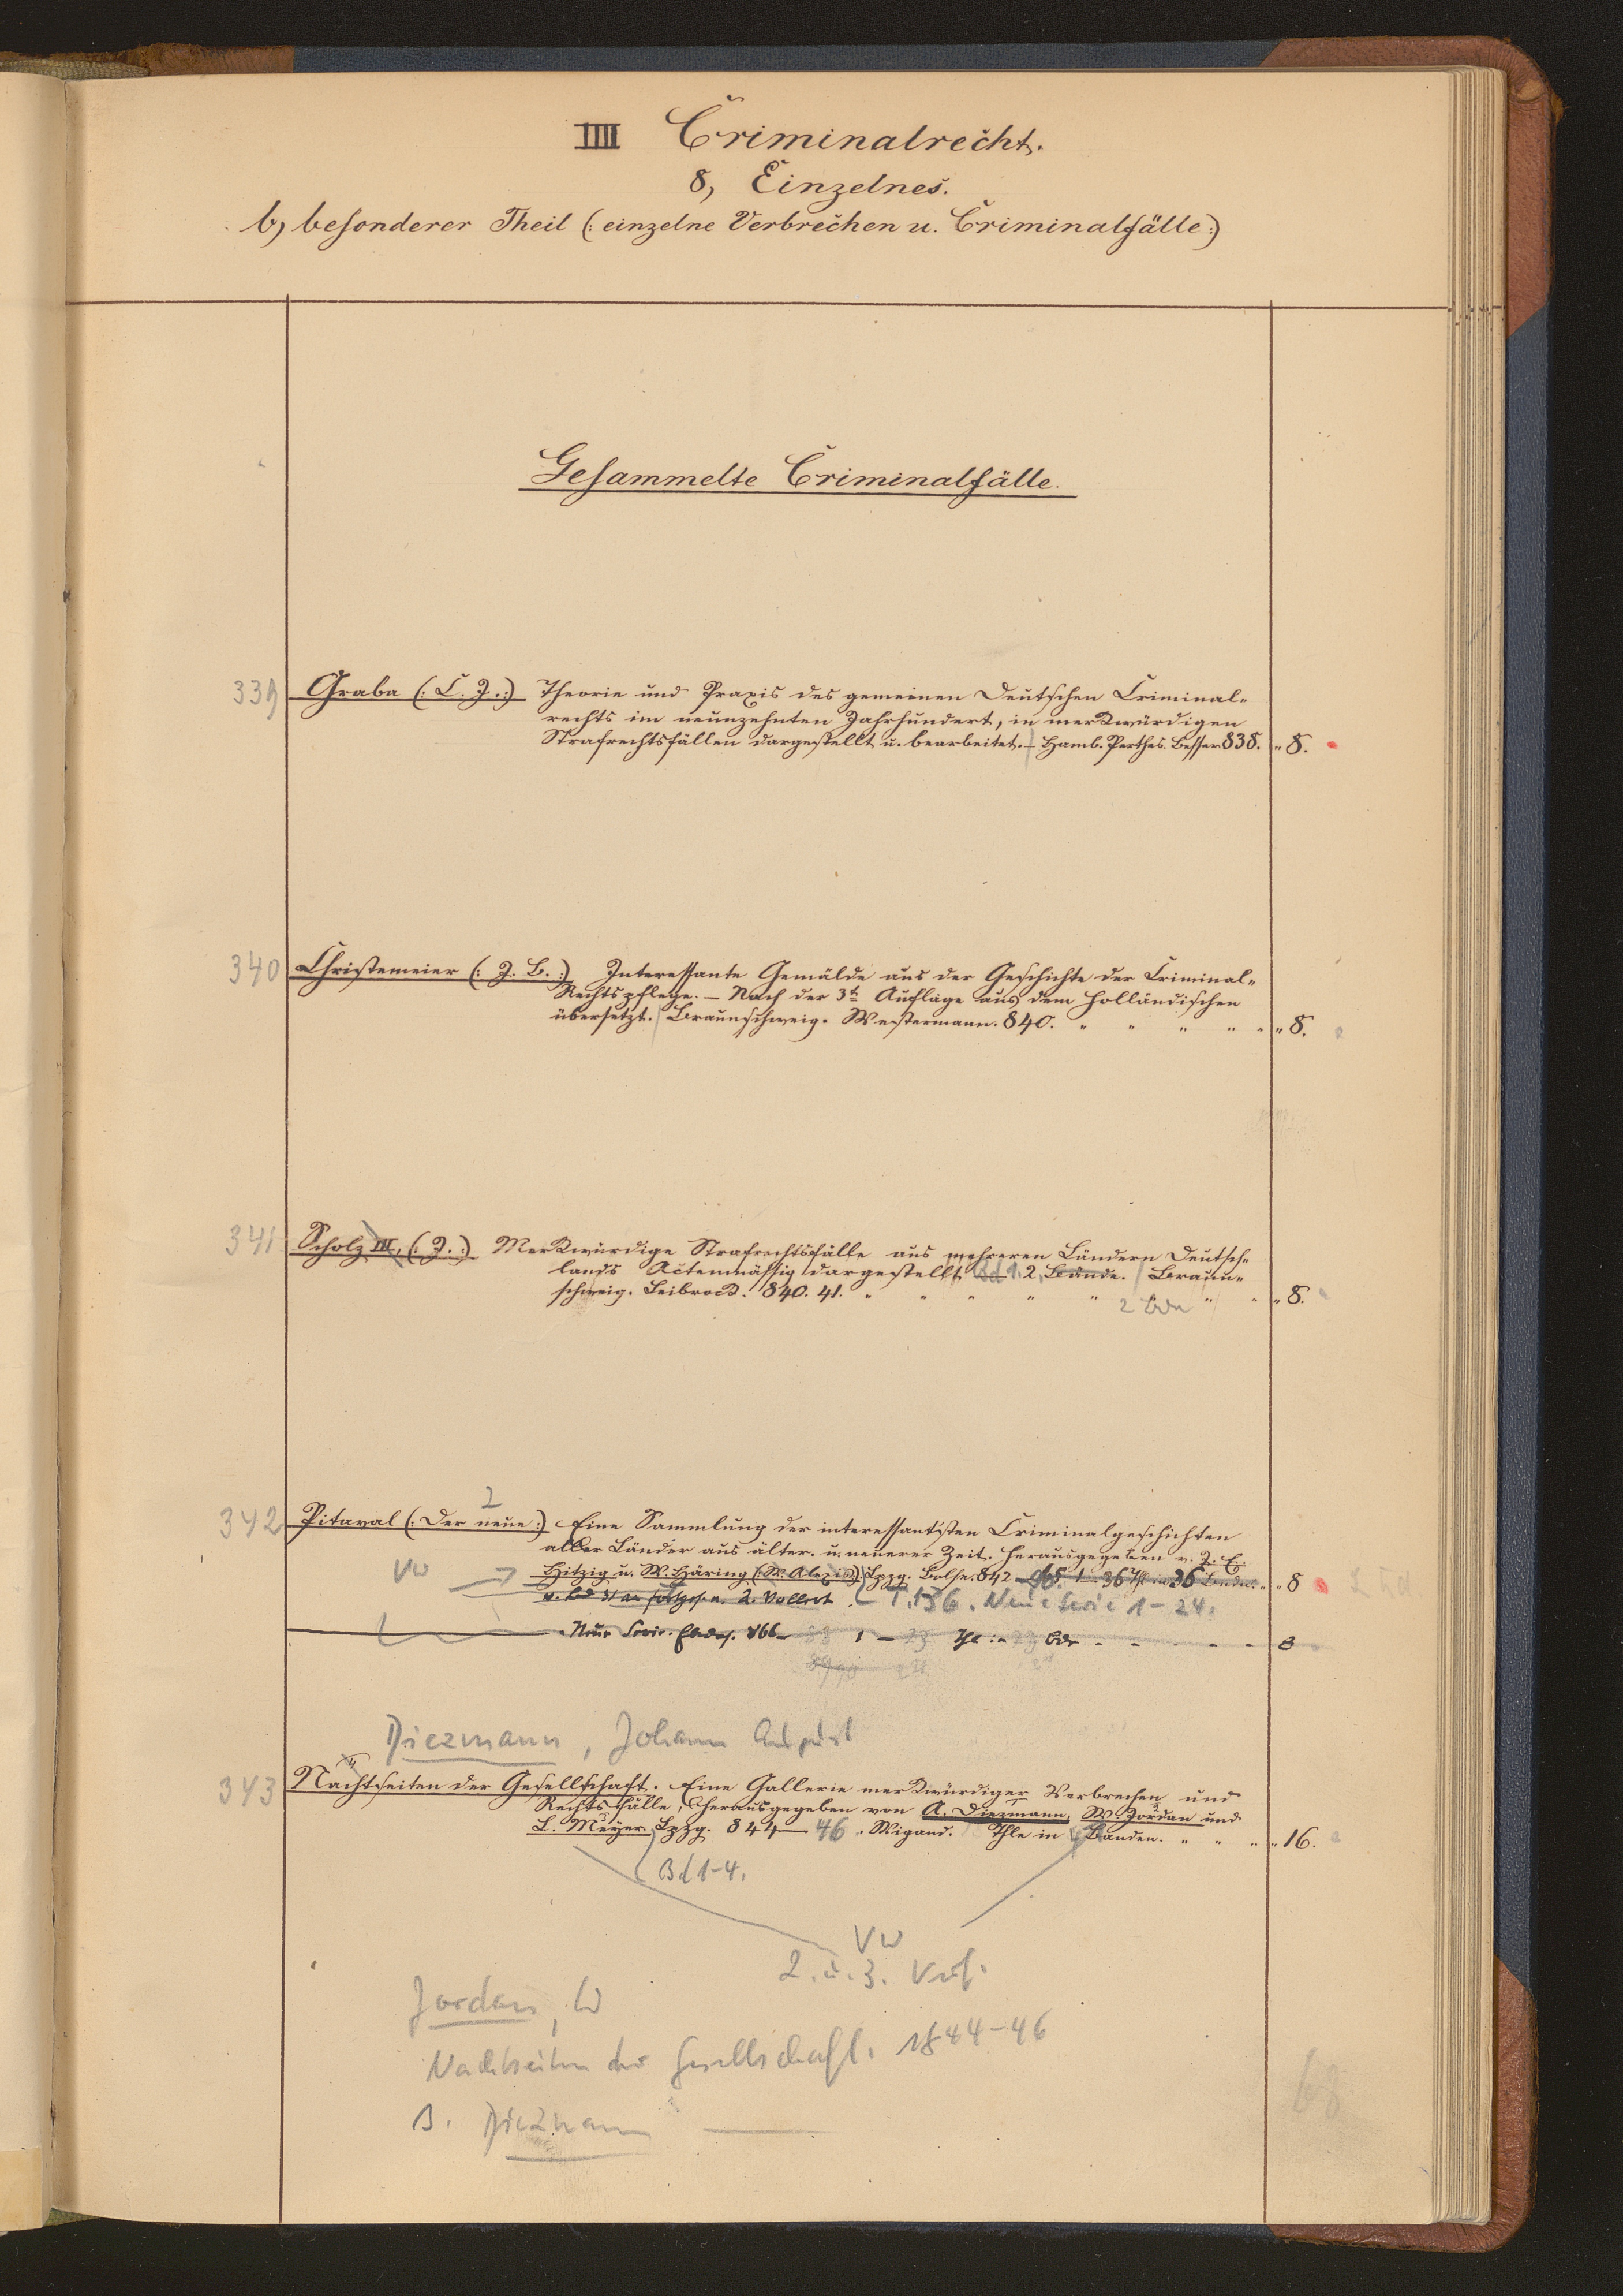 IIII Criminalrecht.
8, Einzelnes.
b, besonderer Theil (: einzelne Verbrechen u. Criminalfälle :)
Gesammelte Criminalfälle.
339 Graba (: C. J. :) Theorie und Praxis des gemeinen Deutschen Criminal-
rechts im neunzehnten Jahrhundert, in merkwürdigen
Strafrechtsfällen dargestellt u. bearbeitet. – Hamb. Perthes. Besser 838. " 8.
340 Christemeier (: J. B. :) Interessante Gemälde aus der Geschichte der Criminal-
Rechtspflege. – Nach der 3t Auflage aus dem Holländischen
übersetzt. Braunschweig. Westermann. 840. " " " " " " 8.
341 Scholz III, (: J. :) Merkwürdige Strafrechtsfälle aus mehreren Ländern Deutsch-
lands Actenmässig dargestellt Bd 1. 2, Bände. Braun-
schweig. Leibrock. 840. 41. " " " " " " " " 8.
2 Bde
342 Pitaval (: Der neue :) Eine Sammlung der interessantesten Criminalgeschichten
aller Länder aus älter. u. neuerer Zeit. herausgegeben v. J. E.
VW → Hitzig u. W. Häring (: W. Alexis :) Lpzg. Brockhs. 842 – 65. 1 – 36 Thl in 36 Bänden. " " 8
v. Bd 31 an fortges. v. A. Vollert T. 1-36. Neue Serie 1 – 24.
– Neue Serie. Ebdas. 866 – 88 1 – 23 Thl in 23 Bde - - - - - 8
Diezmann, Johann August
343 Nachtseiten der Gesellschaft. Eine Gallerie merkwürdiger Verbrechen und
Rechtsfälle, herausgegeben von A. Diezmann, W. Jordan und
L. Meyer. Lpzg. 844 – 46. Wigand. Thle in 4 Banden. " " " " 16.
Bd 1-4.
VW
2. u. 3. Verf.
Jordan, W
Nachtseiten der Gesellschaft. 1844-46
s. Diezmann
68